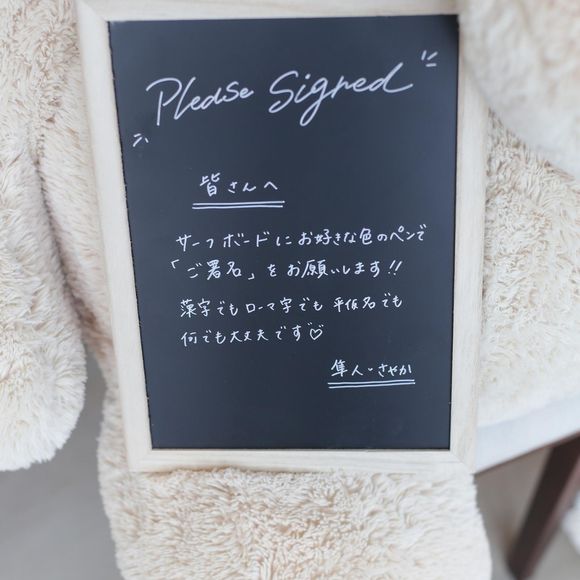 Please Signed
皆さんへ
サーフボードにお好きな色のペンで
「ご署名」をお願いします!!
漢字でもローマ字でも平仮名でも
何でも大丈夫です♡
隼人・さやか